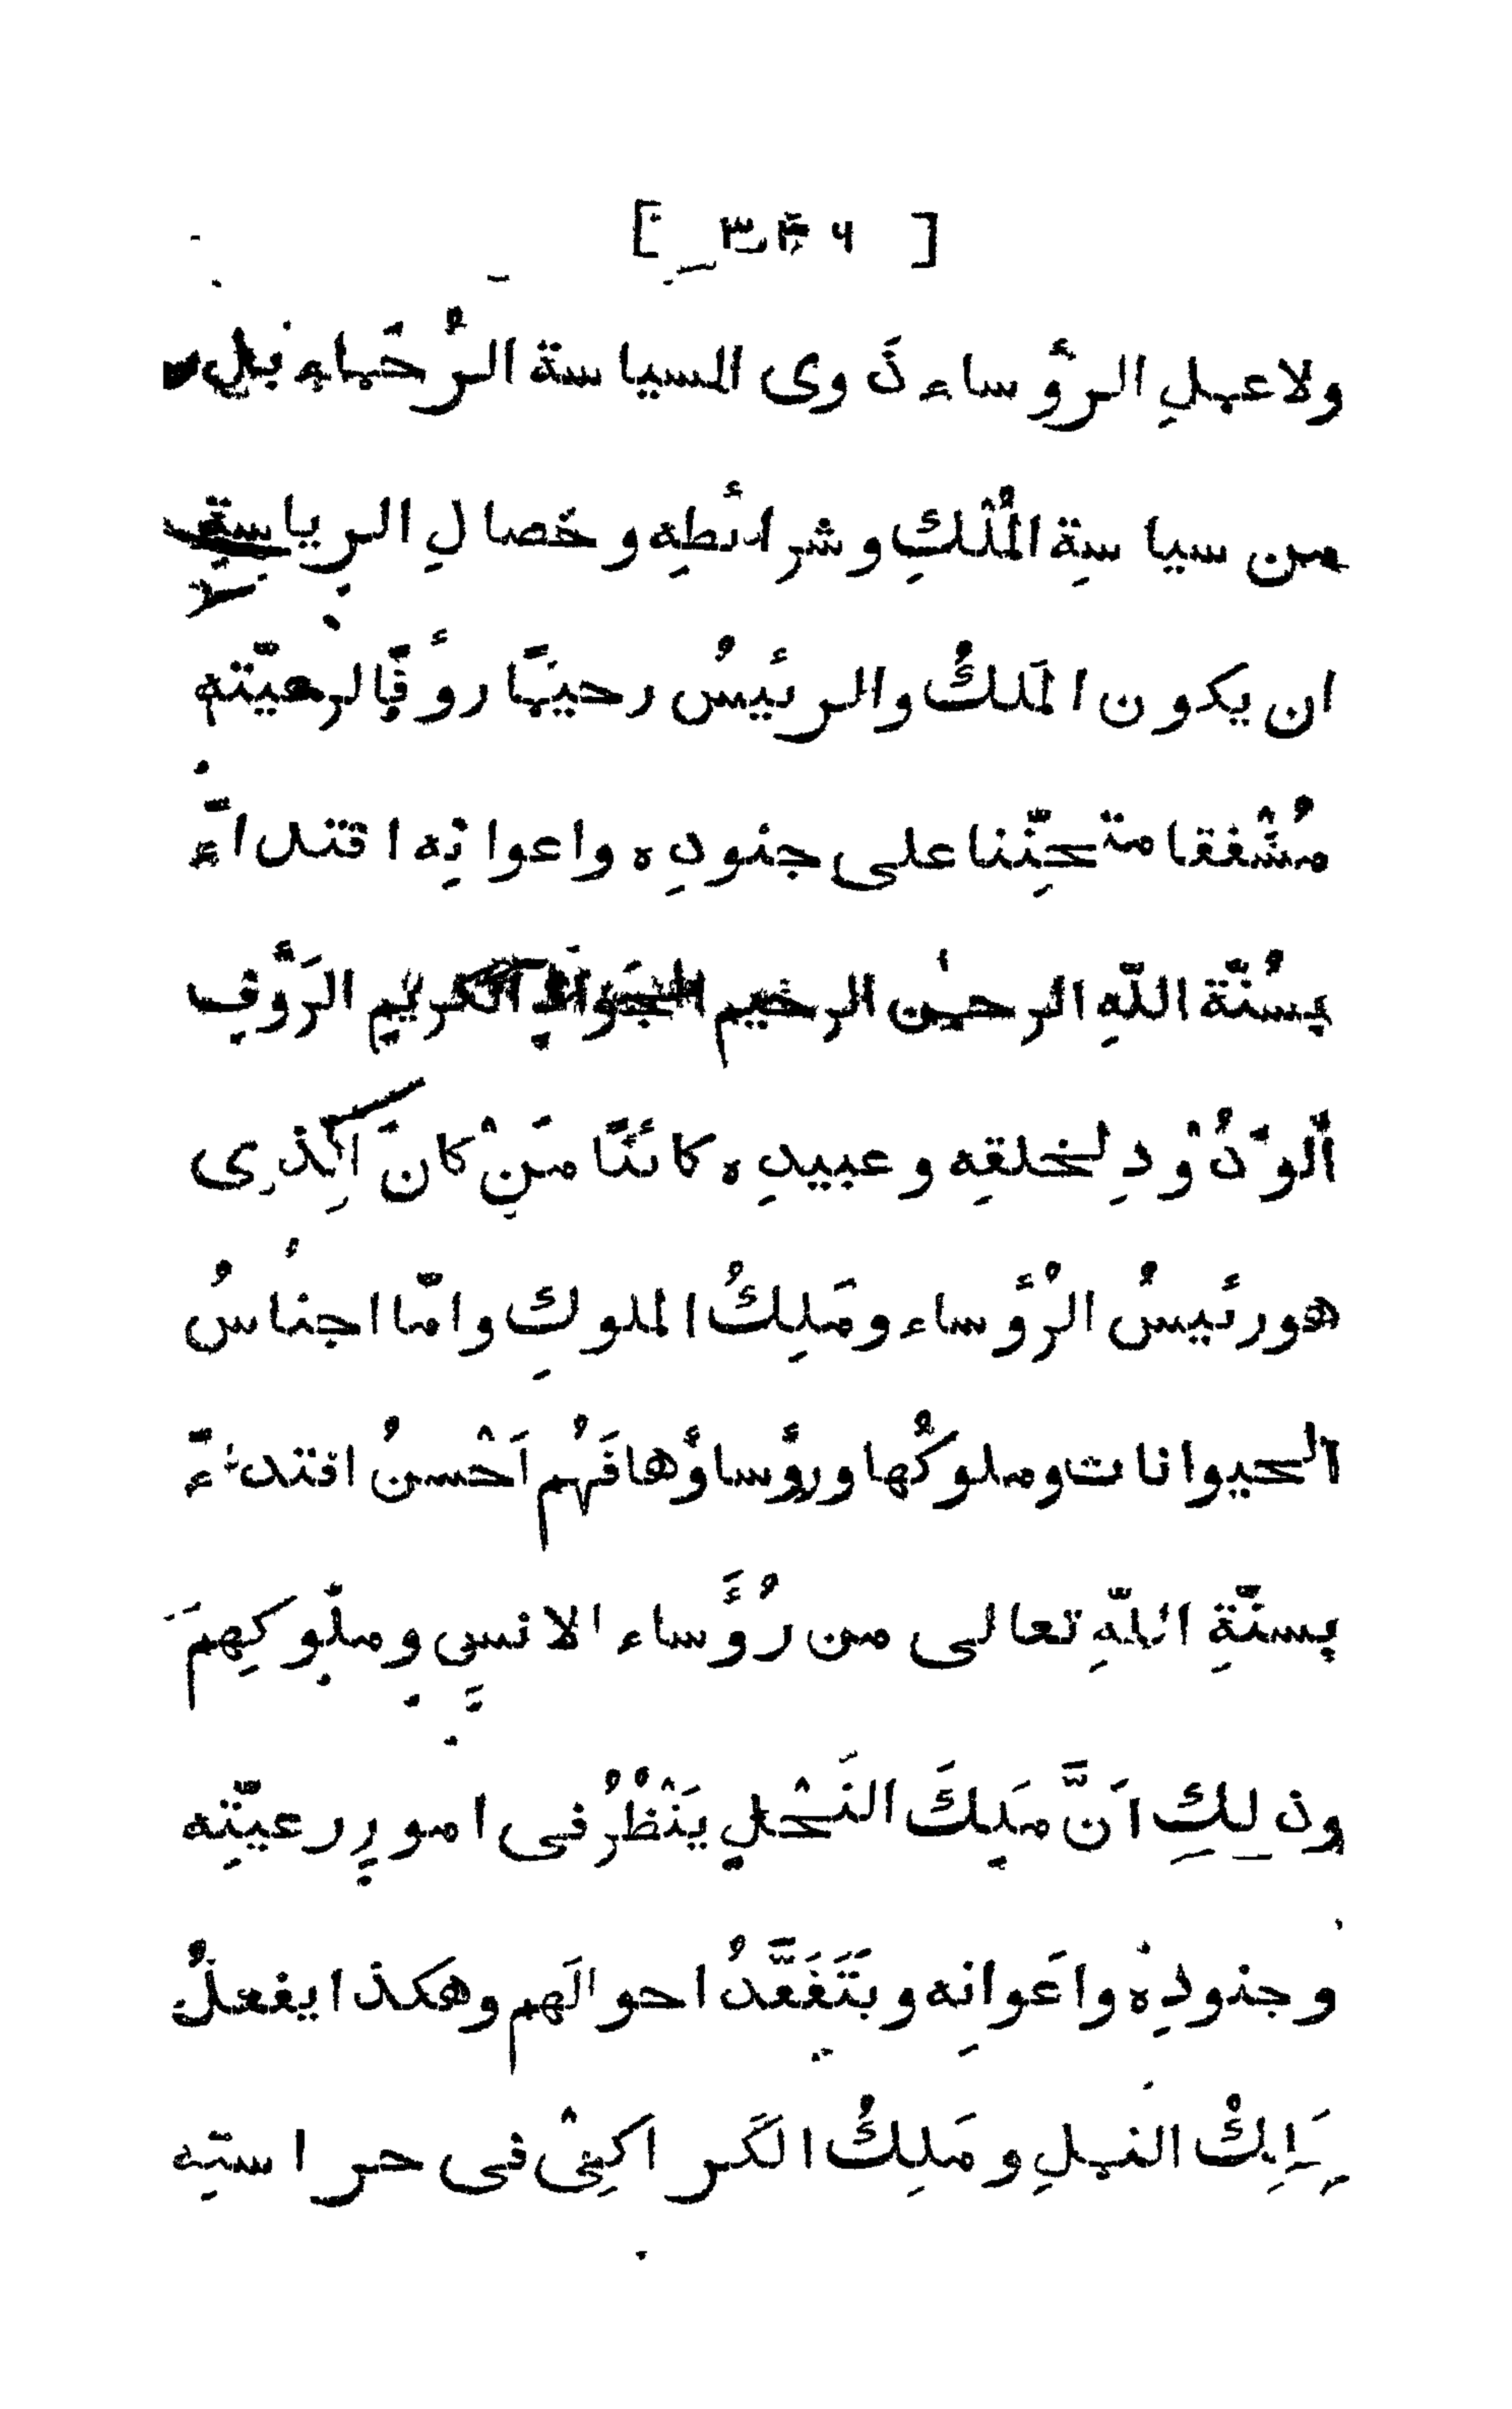 ولا عملِ الرؤساء ذَوى السياسة الرُّحَماءِ بل
من سياسةِ المُلْكِ وشرائطِه وخصالِ الرياسةِ
ان يكون المَلكُ والرئيسُ رحيمًا روُفًا لرعيّته
مُشْفقا متحنِّنا على جنودِه واعوانِه اقتداءً
بسُنّة اللّهِ الرحمٰن الرحيم الجَوادِ الكريمِ الرَؤُفِ
الوَدُوْدِ لخلقِه وعبيدِه كائنًا مَنْ كان الّذى
هو رئيسُ الرُؤساء ومَلِكُ الملوكِ وامّا اجناسُ
الحيوانات وملوكُها ورؤساؤُها فَهُم اَحْسنُ اقتداءً
بسنّةِ اللّهِ تعالى من رُؤَساء الانسِ وملوكِهم
وذلك اَنَّ مَلِكَ النَحْلِ يَنْظُرُ فى امورِ رعيّتِه
وجنودِه واَعوانِه ويَتَفَقَّدُ احوالَهم وهكذا يفعلُ
مَلِكُ النملِ ومَلِكُ الكَراكِىْ فى حراستِه